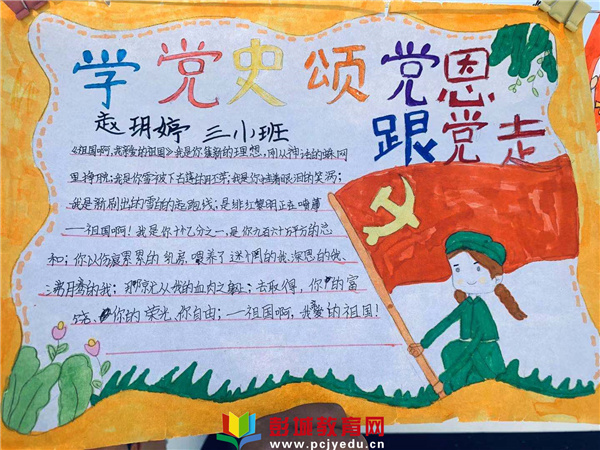 学党史 颂党恩
跟党走
赵玥婷 三小班
《祖国啊,我亲爱的祖国》我是你簇新的理想,刚从神话的蛛网
里挣脱;我是你雪被下古莲的胚芽;我是你挂着眼泪的笑涡;
我是新刷出的雪白的起跑线;是绯红黎明正在喷薄
——祖国啊!我是你十亿分之一,是你九百六十万平方的总
和;你以伤痕累累的乳房,喂养了迷惘的我、深思的我、
沸腾的我;那就从我的血肉之躯上去取得,你的富
饶、你的荣光、你自由;——祖国啊,我亲爱的祖国!
彭城教育网
www.pcjyedu.cn